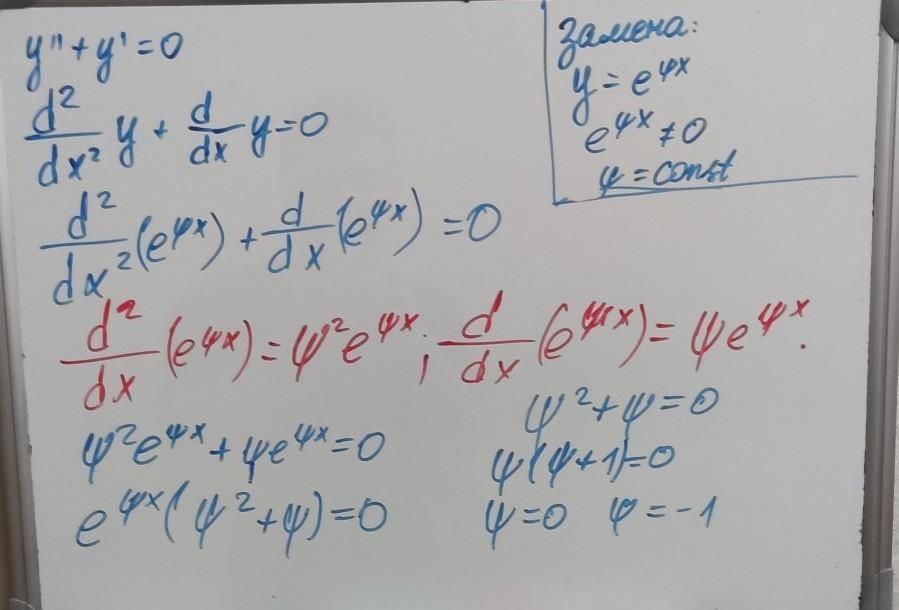 y'' + y' = 0
d²/dx² y + d/dx y = 0
d²/dx² (e^ψx) + d/dx (e^ψx) = 0
Замена:
y = e^ψx
e^ψx ≠ 0
ψ = const
d²/dx (e^ψx) = ψ² e^ψx ; d/dx (e^ψx) = ψ e^ψx .
ψ² e^ψx + ψ e^ψx = 0
e^ψx (ψ² + ψ) = 0
ψ² + ψ = 0
ψ (ψ + 1) = 0
ψ = 0 ψ = -1